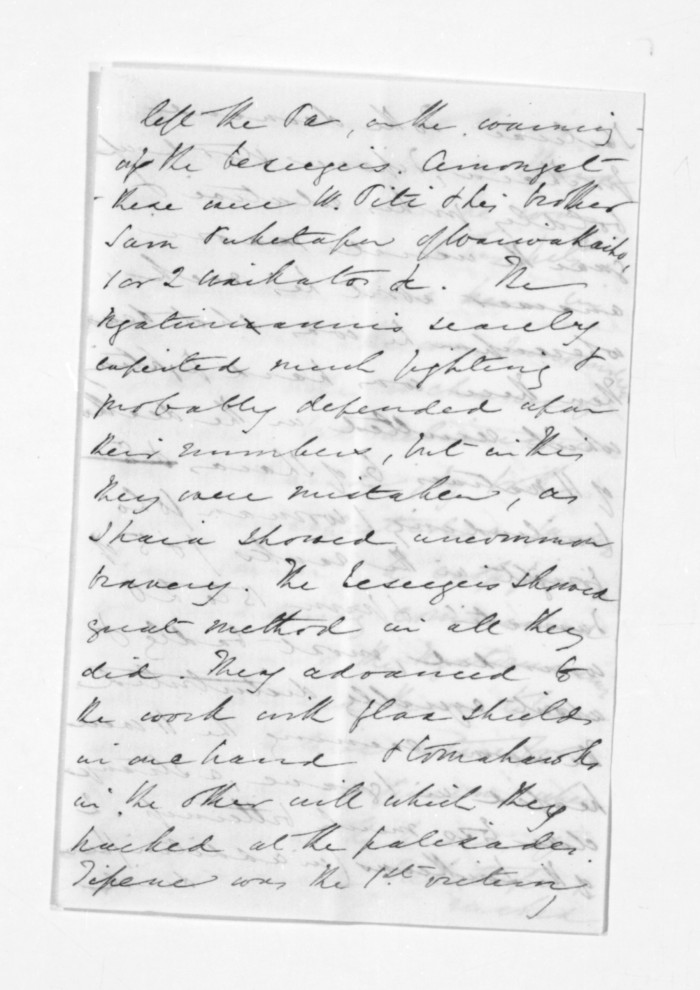 left the Pa, on the warning
of the beseigers. Amongst
these were W. Piti & his brother
Sam Puketapu of Waiwakaiho,
1 or 2 Waikatos &c. The
Ngatiruanuis scarcely
expected much fighting &
probably depended upon
their numbers, but in this
they were mistaken, as
Ihaia showed uncommon
bravery. The beseigers showed
great method in all they
did. They advanced to
the work with flax shields
in one hand & tomahawks
in the other with which they
hacked at the palisades.
Tipene was the 1st. victim